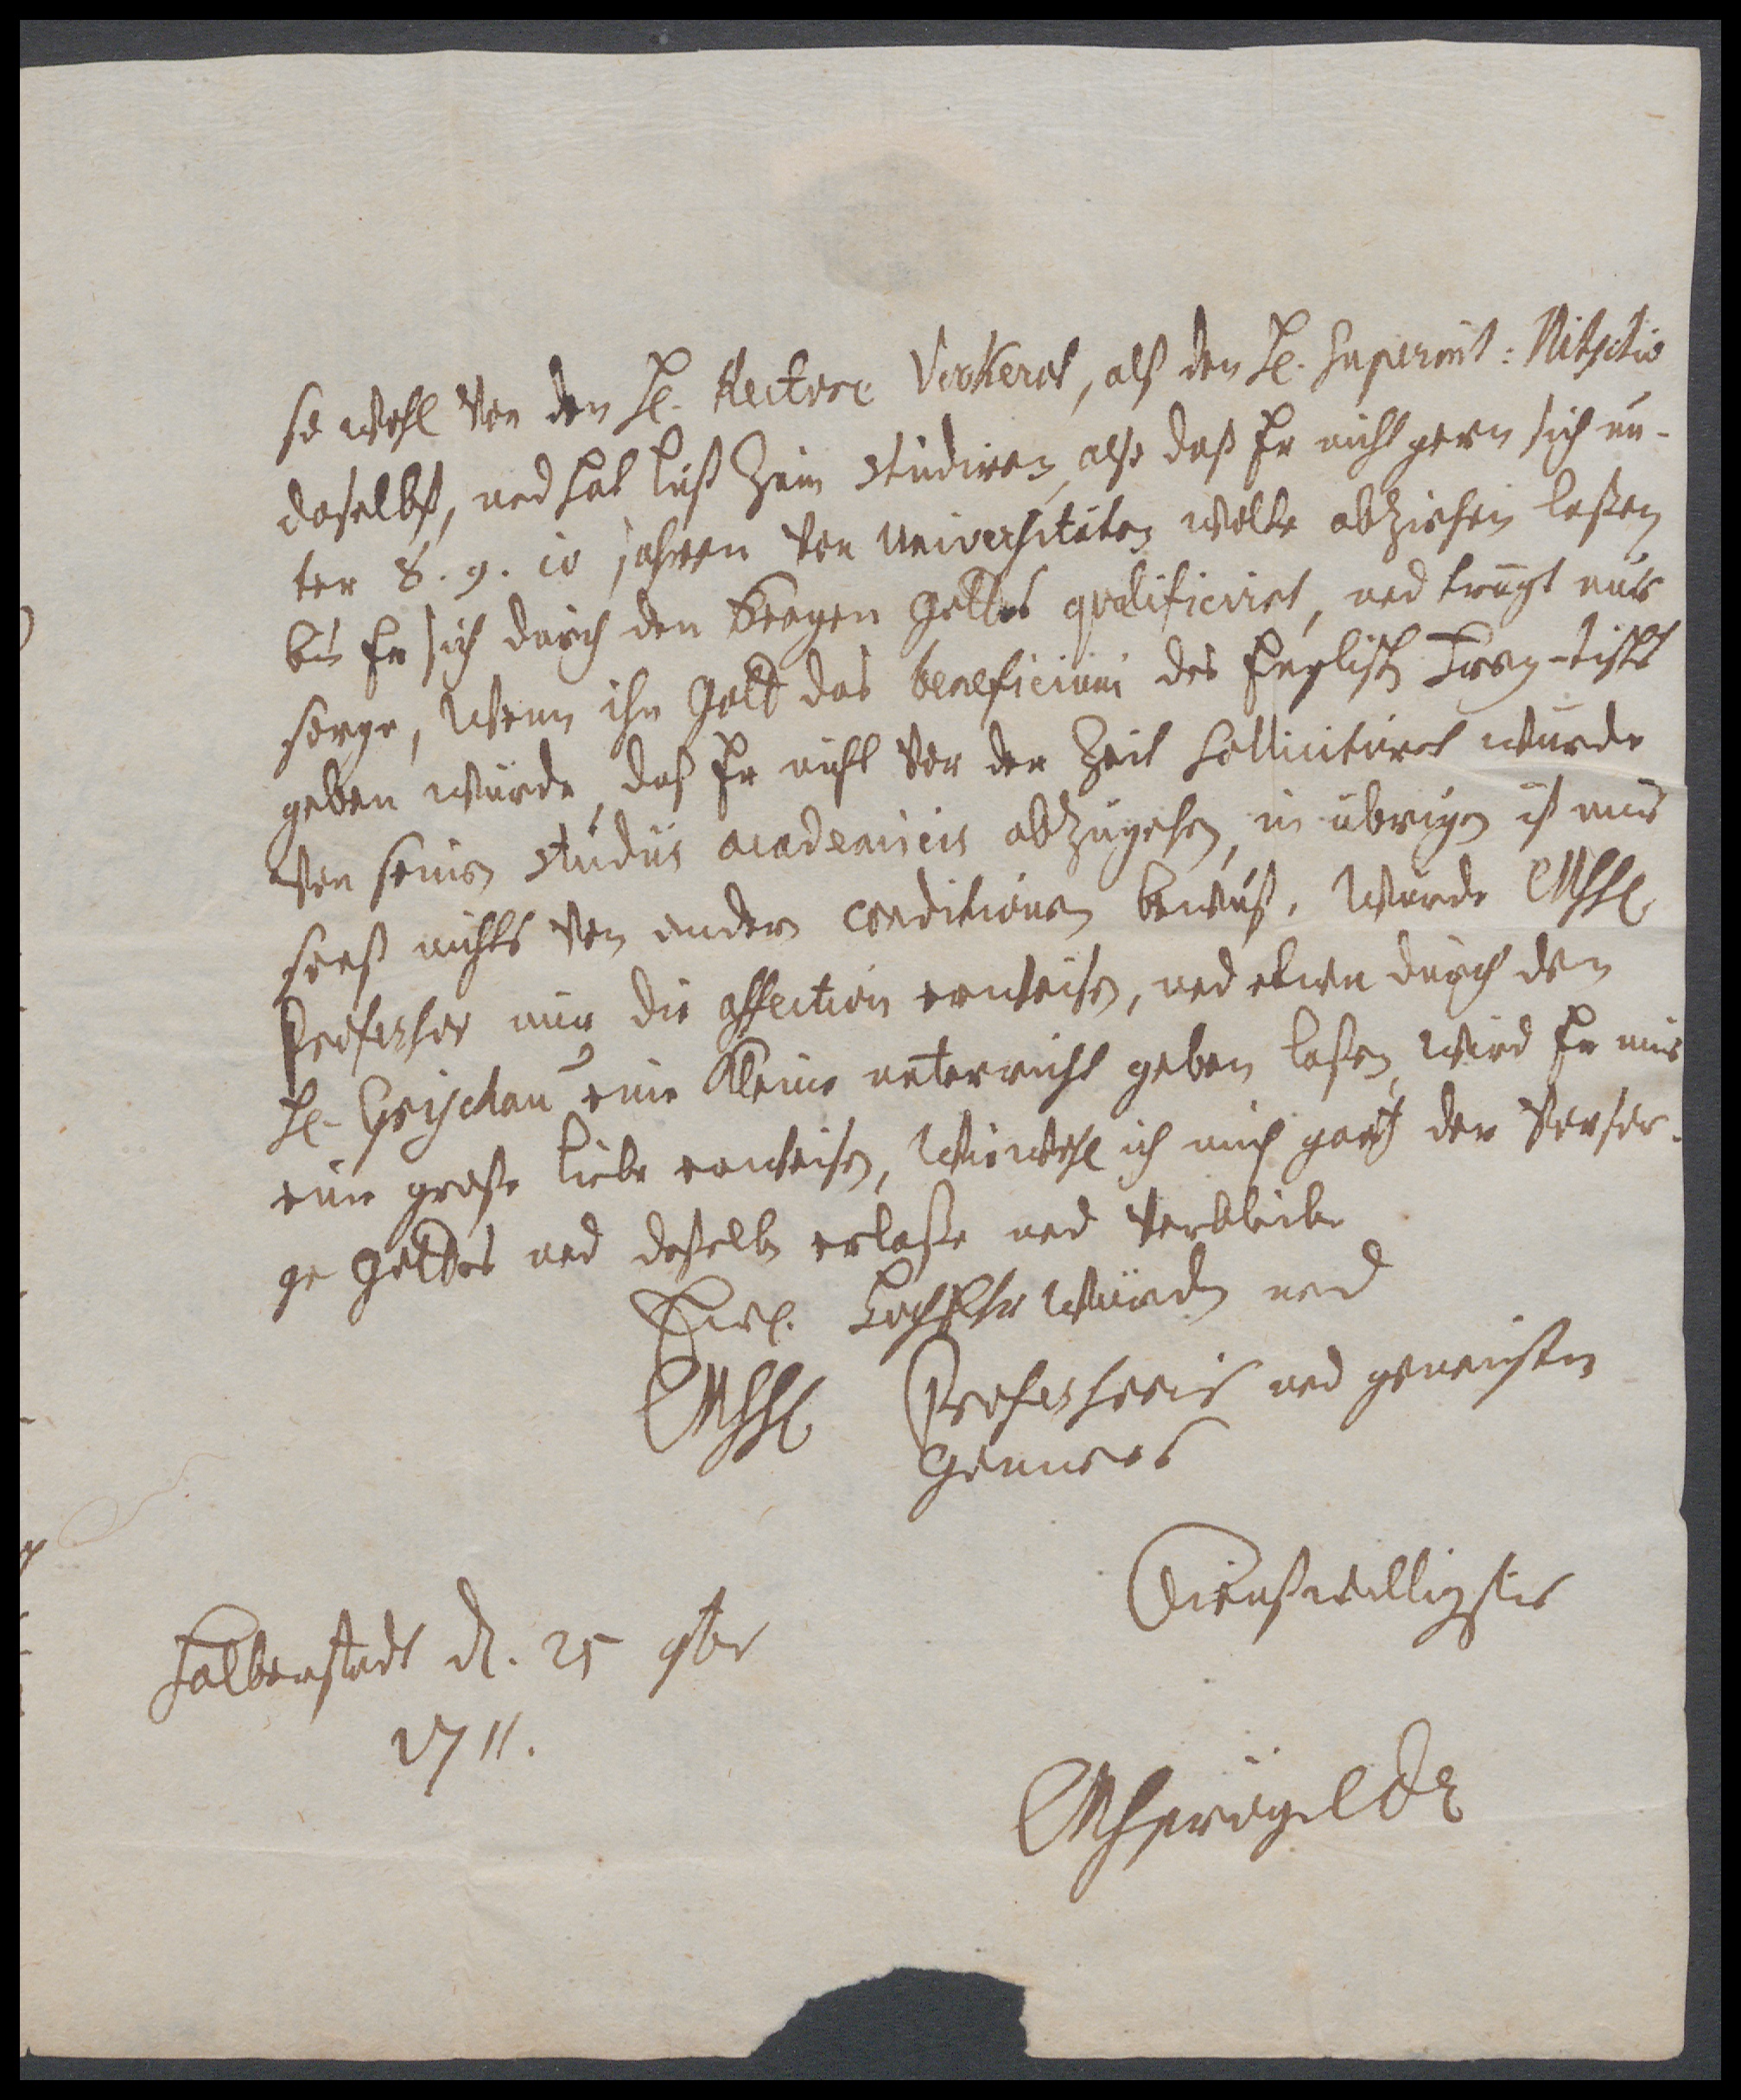 so wohl von den H. Rectore Vockerot, alß den H. Superint: Nitschio
daselbst, und hat lust zum studiren, also daß Er nicht gern sich un-
ter 8. 9. 10 jahren von Universitäten wolte abziehen laßen
bis Er sich durch den Seegen Gottes qvalificiret, und trägt nur
sorge, wenn ihn Gott das beneficium des Englisch Frey-tischs
geben würde, daß Er nicht vor der Zeit sollicitiret würde
von seinen studiis academicis abzugehen, im übrigen ist mir
sonst nichts von andern conditionen bewust. Würde MhH
Professor mir die affection erweisen, und etwa durch den
H. Grischau eine kleine unterricht geben laßen, wird Er mir
eine große liebe erweisen, wiewohl ich mich gantz der vorsor-
ge Gottes und deßelben erlaße und verbleibe
Ewl. HochEhrwürden und
MhH Professoris und geneigten
Gönners
Dienstwilligster
Halberstadt d. 25 9br
1711.